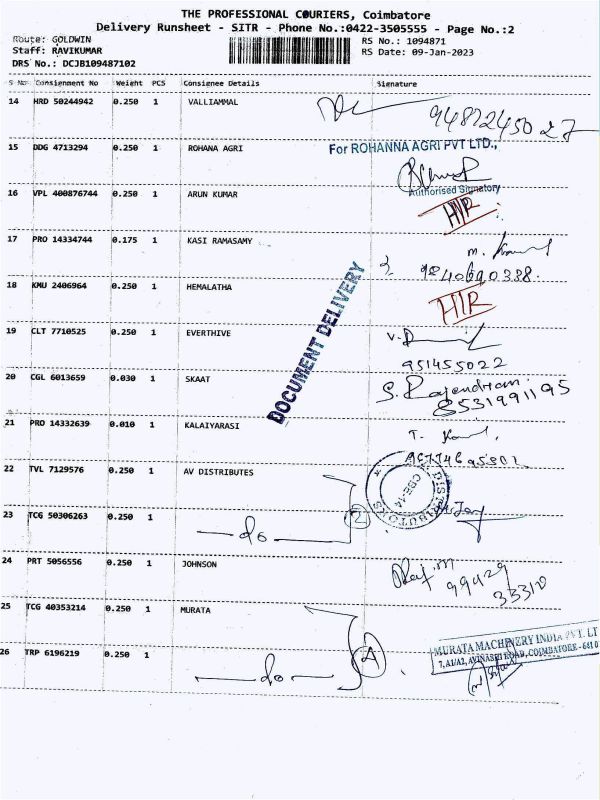 THE PROFESSIONAL COURIERS, Coimbatore
Delivery Runsheet - SITR - Phone No.:0422-3505555 - Page No.:2
Route: GOLDWIN
RS No.: 1094871
Staff: RAVIKUMAR
RS Date: 09-Jan-2023
DRS No.: DCJB109487102
S No Consignment No Weight PCS Consignee Details Signature
14 HRD 50244942 0.250 1 VALLIAMMAL
15 DDG 4713294 0.250 1 ROHANA AGRI For ROHANNA AGRI PVT LTD.,
Authorised Signatory
16 VPL 400876744 0.250 1 ARUN KUMAR HIR
17 PRO 14334744 0.175 1 KASI RAMASAMY
18 KMU 2406964 0.250 1 HEMALATHA HIR
DOCUMENT DELIVERY
19 CLT 7710525 0.250 1 EVERTHIVE
951455022
20 CGL 6013659 0.030 1 SKAAT S. Rajendran
8531991195
21 PRO 14332639 0.010 1 KALAIYARASI
22 TVL 7129576 0.250 1 AV DISTRIBUTES
DISTRIBUTORS
CBE-14
23 TCG 50306263 0.250 1 do 2
24 PRT 5056556 0.250 1 JOHNSON
99429
33310
25 TCG 40353214 0.250 1 MURATA
MURATA MACHINERY INDIA PVT. LT
7, A1/A2, AVINASHI ROAD, COIMBATORE - 641 0
26 TRP 6196219 0.250 1 do 4